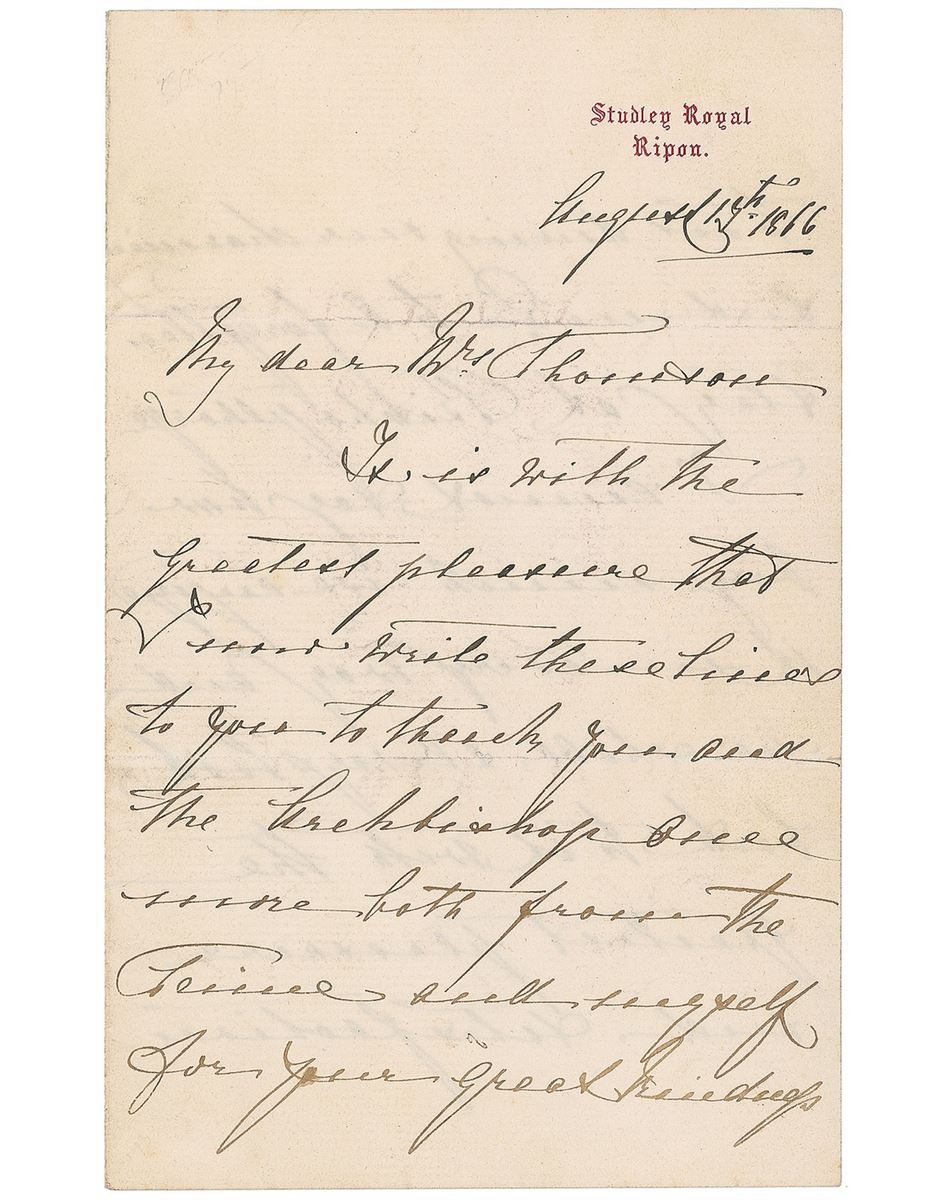 Studley Royal
Ripon.
August 1866
My dear Mrs Thomson
It is with the
greatest pleasure that
I now write these lines
to you to thank you and
the Archbishop once
more both from the
and myself
for your great kindness